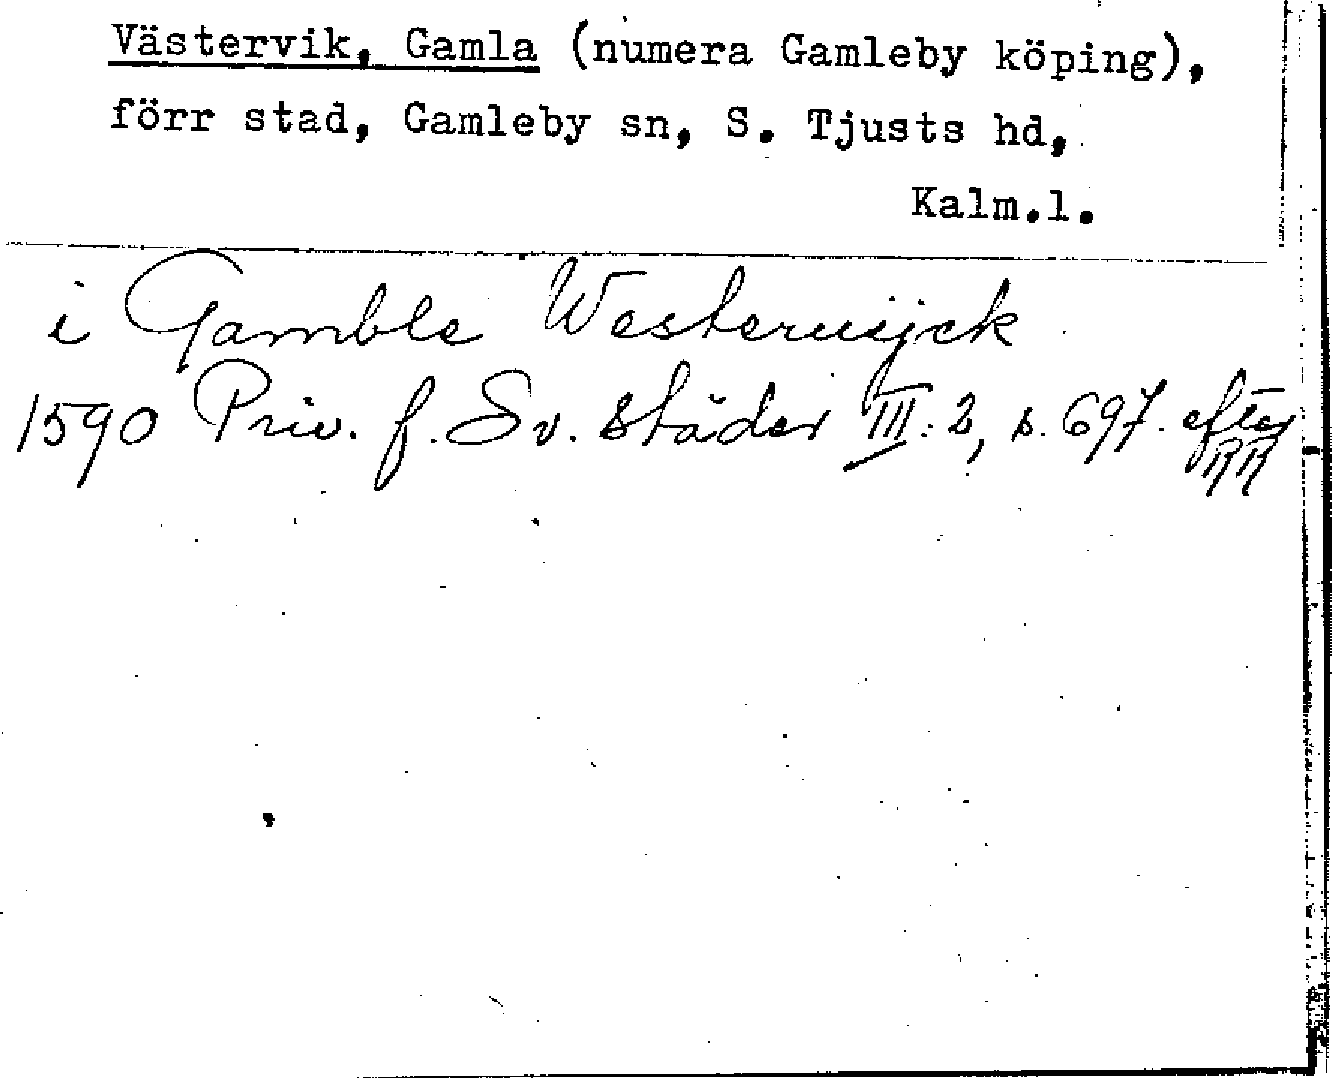 Västervik, Gamla (numera Gamleby köping),
förr stad, Gamleby sn, S. Tjusts hd,
Kalm.l.
i Gamble Westerwijck
1590 Priv. f. Sv. städer III: 2, s. 697. efter
RR